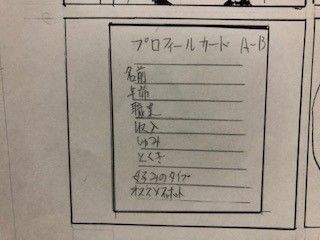 プロフィールカード A-B
名前
年齢
職業
収入
しゅみ
とくぎ
好みのタイプ
オススメスポット